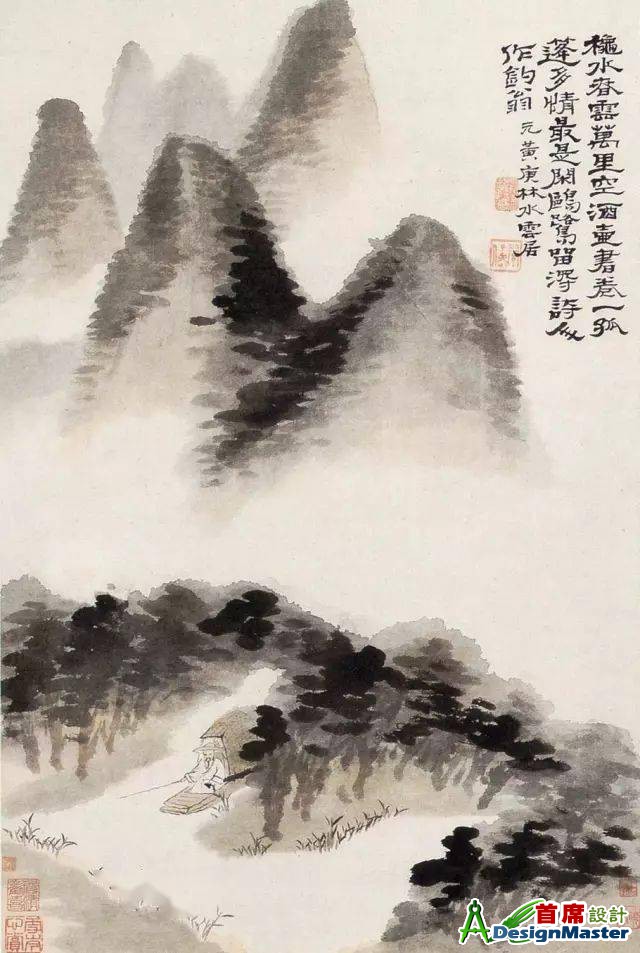 穐水春雲萬里空酒壺書卷一孤
篷多情最是閑鷗鷺留詩人
作釣翁 元黃庚林水雲居
首席設計
DesignMaster